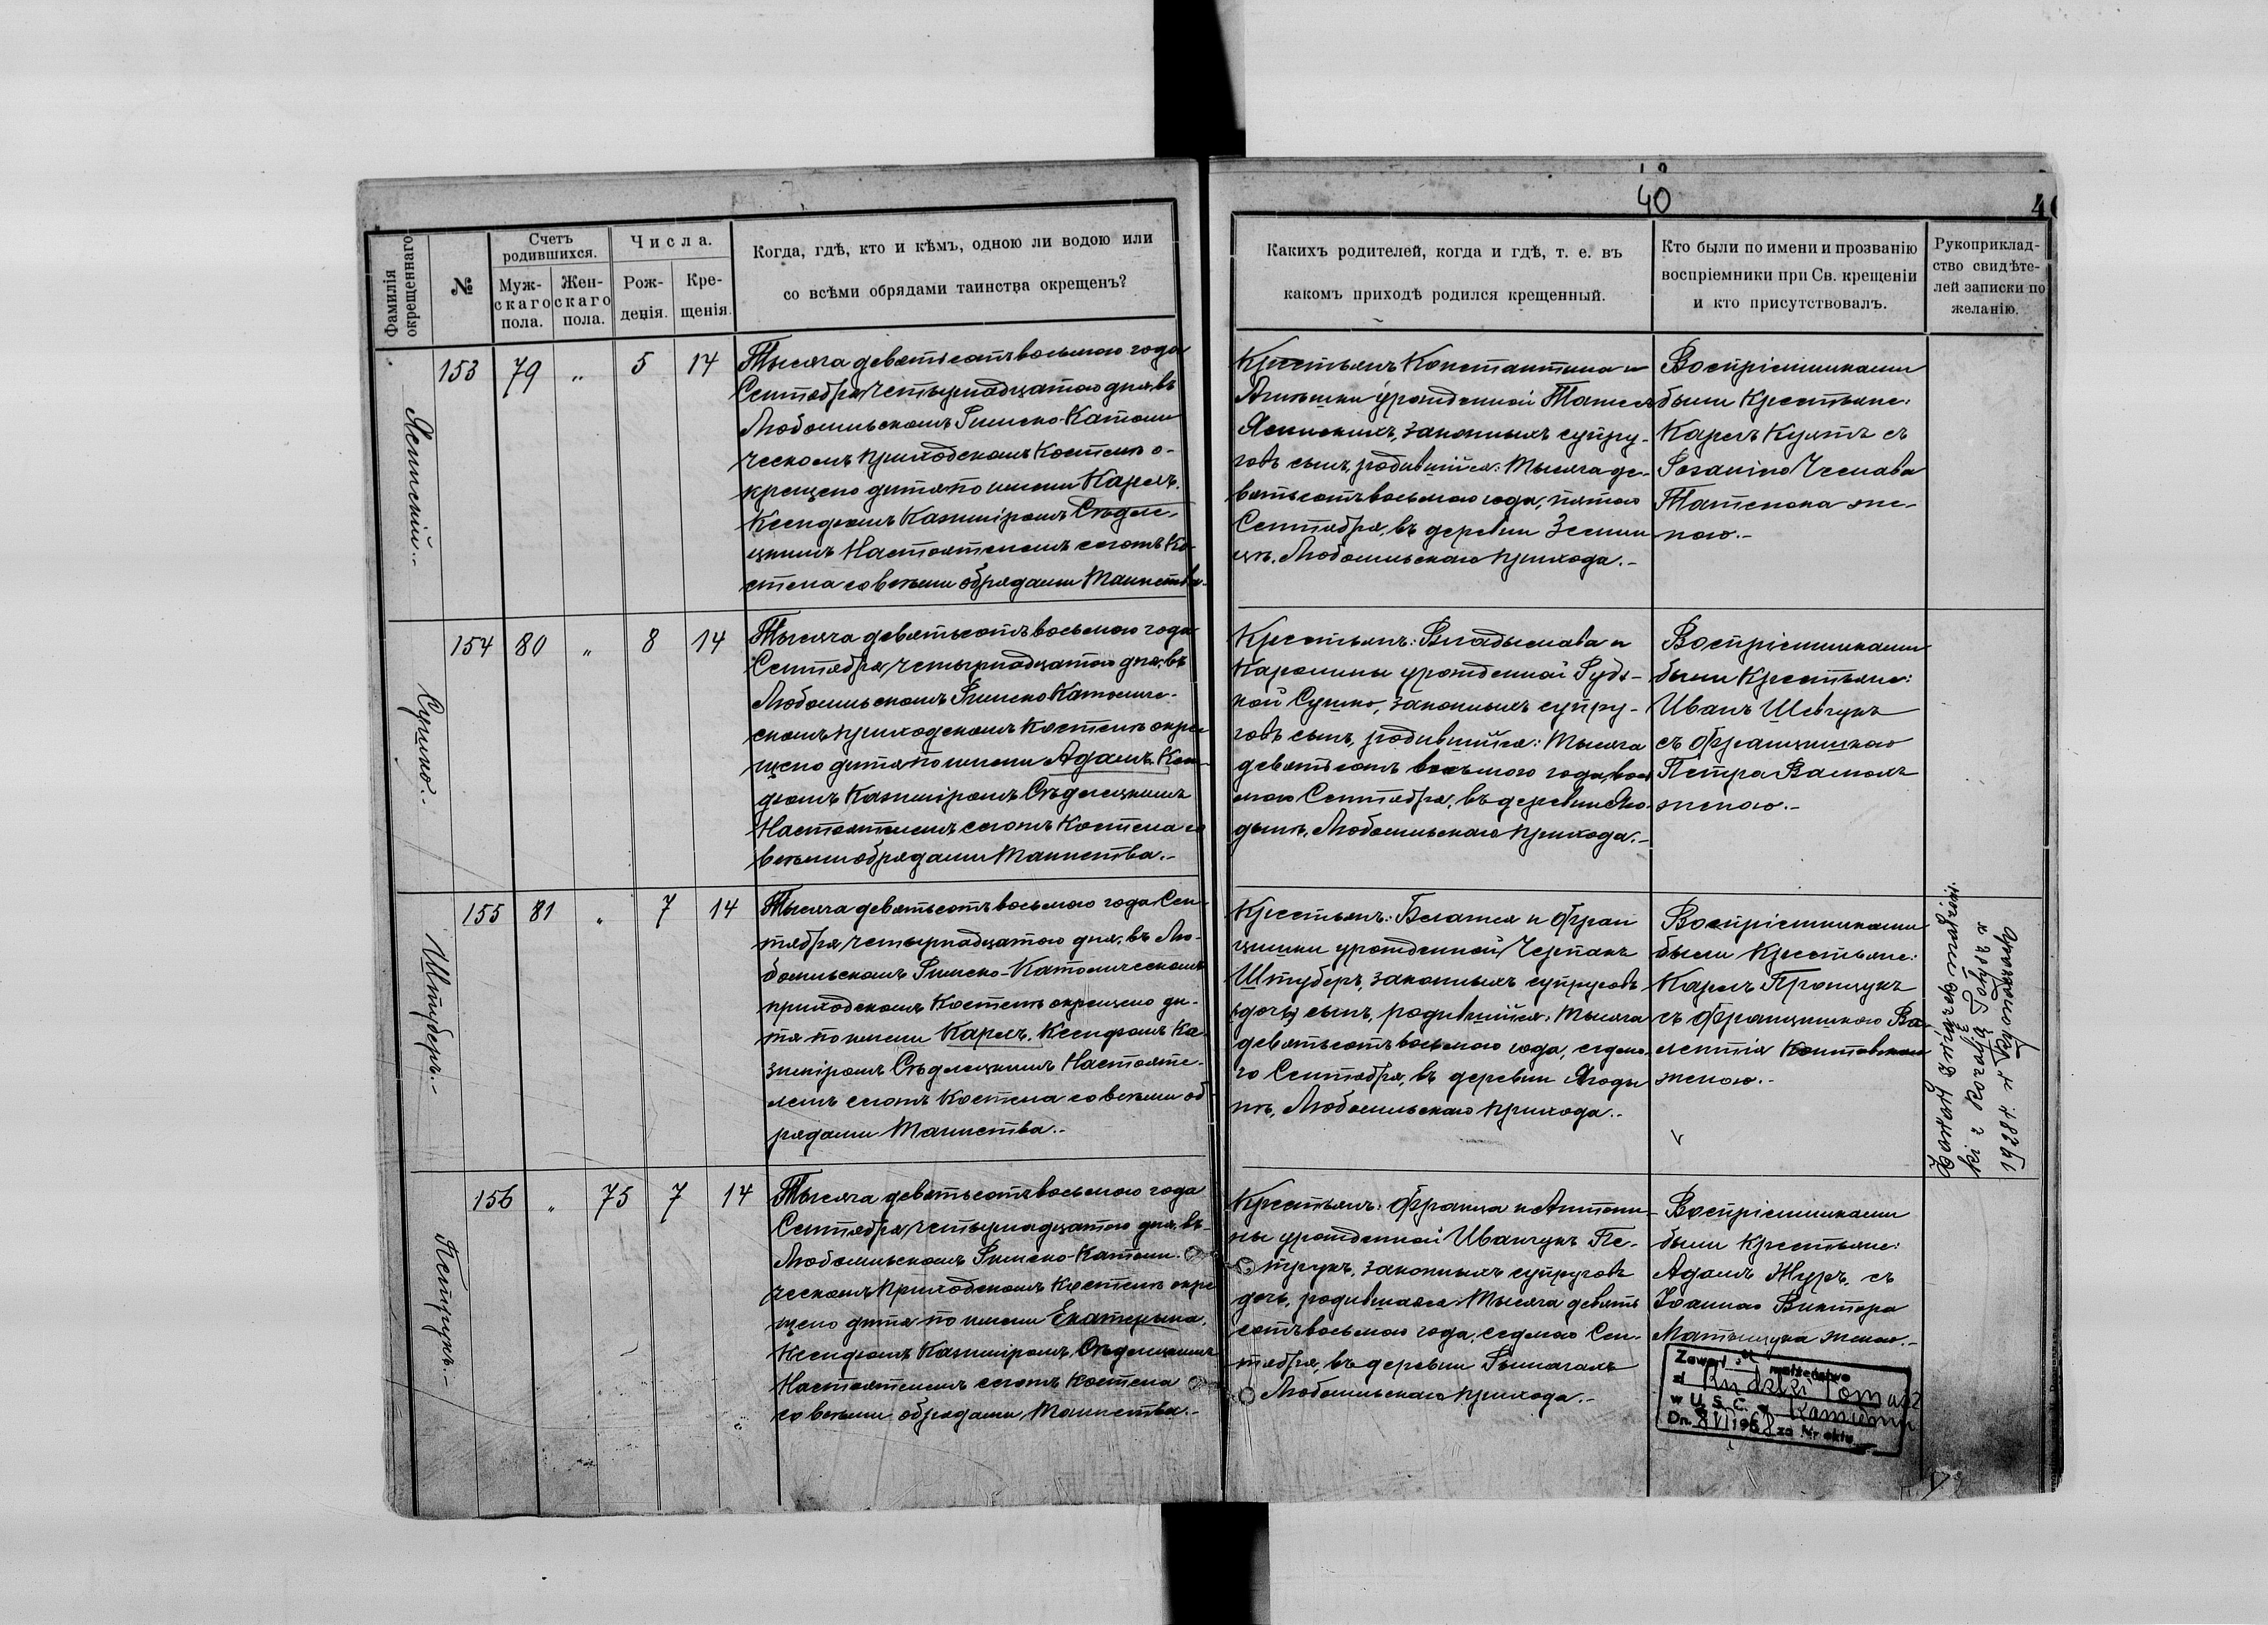 40
Фамилія окрещеннаго
№
Счетъ родившихся.
Муж-скаго пола.
Жен-скаго пола.
Числа.
Рож-денія.
Кре-щенія.
Когда, гдѣ, кто и кѣмъ, одною ли водою или
со всѣми обрядами таинства окрещенъ?
Какихъ родителей, когда и гдѣ, т. е. въ
какомъ приходѣ родился крещенный.
Кто были по имени и прозванію
воспріемники при Св. крещеніи
и кто присутствовалъ.
Рукоприклад-
ство свидѣте-
лей записки по
желанію.
153 79 " 5 14
Тысяча девятьсотъ восьмого года
Сентября четырнадцатого дня, въ
Любомльскомъ Римско-Католи
ческомъ приходскомъ Костелѣ о-
крещено дитя по имени Карлъ.
Ксендзомъ Казиміромъ Сѣдле-
цкимъ Настоятелемъ сегожъ Ко-
стела со всѣми обрядами Таинства.
Крестьянъ Константина и
Агнѣшки урожденной
законныхъ супру-
говъ сынъ, родившійся: Тысяча де-
вятьсотъ восьмого года, пятого
Сентября, въ деревни Земли
цѣ, Любомльскаго прихода.-
Воспріемниками
были Крестьяне:
Карлъ съ
Розалією Чеслава
же-
ною.-
154 80 " 8 14
Сушко.-
Тысяча девятьсотъ восьмого года
Сентября четырнадцатого дня, въ
Любомльскомъ Римско Католиче-
скомъ приходскомъ Костелѣ окре
щено дитя по имени Адамъ. Ксен-
дзомъ Казиміромъ Сѣдлецкимъ
Настоятелемъ сегожъ Костела со
всѣми обрядами Таинства.-
Крестьянъ: Владыслава и
Каролины урожденной Рудз-
кой Сушко, законныхъ супру-
говъ сынъ, родившійся: Тысяча
девятьсотъ восьмого года, вось
мого Сентября, въ деревни Яго-
дынѣ, Любомльскаго прихода.-
Воспріемниками
были Крестьяне:
Иванъ Шевчукъ
съ Францишкою
Петра
женою.-
155 81 " 7 14
Штуберъ.-
Тысяча девятьсотъ восьмого года Сен-
тября четырнадцатого дня, въ Лю-
бомльскомъ Римско-Католическомъ
приходскомъ Костелѣ окрещено ди-
тя по имени Карлъ. Ксендзомъ Ка-
зиміромъ Сѣдлецкимъ Настояте-
лемъ сегожъ Костела со всѣми об
рядами Таинства.-
Крестьянъ: и Фран
цишки урожденной Черпакъ
Штуберъ, законныхъ супруговъ
(дочь) сынъ, родившійся: Тысяча
девятьсотъ восьмого года, седьмо-
го Сентября, въ деревни Ягоды
нѣ, Любомльскаго прихода.-
Воспріемниками
были Крестьяне:
Карлъ Пронцукъ
съ Францишкою Ва-
лентія
женою.-
156 " 75 7 14
Петрукъ.-
Тысяча девятьсотъ восьмого года
Сентября четырнадцатого дня, въ
Любомльскомъ Римско-Католи
ческомъ приходскомъ Костелѣ окре
щено дитя по имени Екатерына.
Ксендзомъ Казиміромъ Сѣдлецкимъ
Настоятелемъ сегожъ Костела
со всѣми обрядами Таинства.-
Крестьянъ: Франца и Антони-
ны урожденной Иванчукъ Пе-
трукъ, законныхъ супруговъ
дочь, родившаяся: Тысяча девять
сотъ восьмого года, седмого Сен-
тября, въ деревни Рымачахъ
Любомльскаго прихода.-
Воспріемниками
были Крестьяне:
Адамъ Журъ, съ
Іоанною Виктора
женою.-
Zawarł małżeństwo
z Rudzki Tomasz
w U. S. C. w Kamieniu
Dn. 8 VI 1968 za Nr aktu